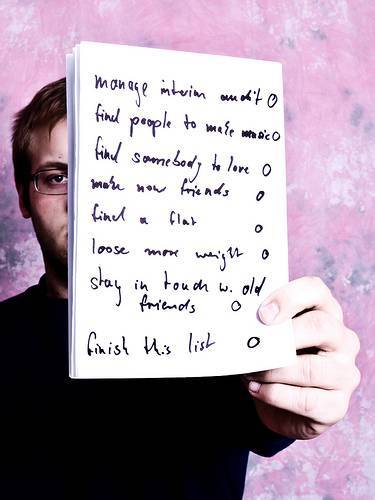 manage interim audit O
find people to make music O
find somebody to love O
make new friends O
find a flat O
loose more weight O
stay in touch w. old
friends O
finish this list O